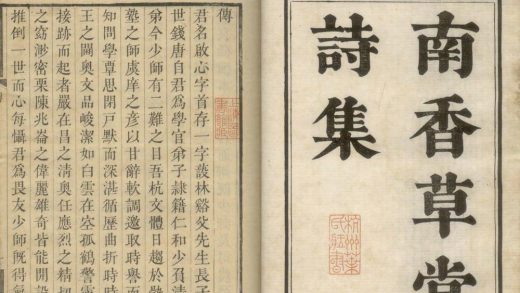 南香草堂
詩集
杭州葉氏藏書
傳
君名啟心字首存一字蔎林谿父先生長子
世錢唐自君為學官弟子隸籍仁和少負清
弟今少師有二難之目吾杭文體日趨於
塾之師虞庠之彥以甘辭軟調邀取時譽而
知問學覃思閉戶默而深湛循歷曲折時時
王之閫奧文品峻潔如白雲在空孤鶴警露
接跡而起者嚴在昌之清奧任應烈之精切
之窈渺密栗陳兆崙之偉麗雄奇皆能開設
推倒一世而心每懾君為畏友少師既得氣